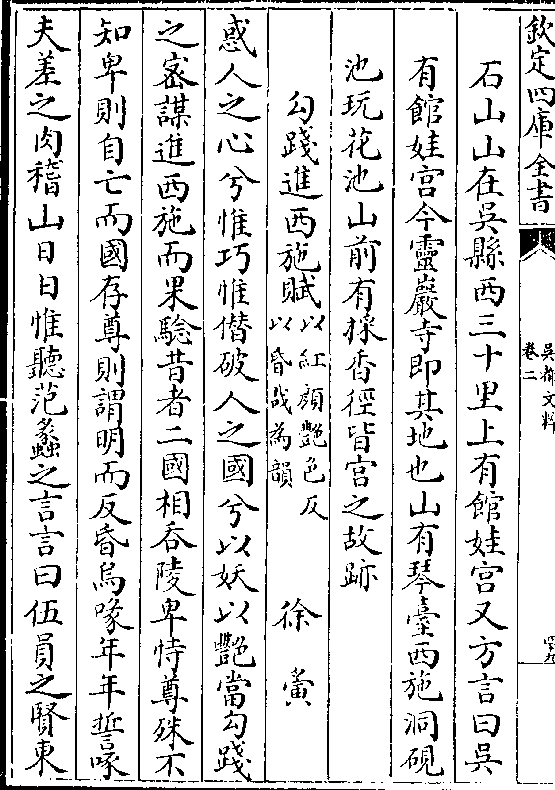 欽定四庫全書
吳都文粹
卷二
四十九
石山山在吳縣西三十里上有館娃宮又方言曰吳
有館娃宮今靈巖寺即其地也山有琴臺西施洞硯
池玩花池山前有採香徑皆宮之故跡
勾踐進西施賦以紅顏艷色反
以昏哉為韻
徐夤
惑人之心兮惟巧惟僭破人之國兮以妖以艷當勾踐
之密謀進西施而果驗昔者二國相吞陵卑恃尊殊不
知卑則自亡而國存尊則謂明而反昏烏喙年年誓啄
夫差之肉稽山日日惟聽范蠡之言言曰伍員之賢東